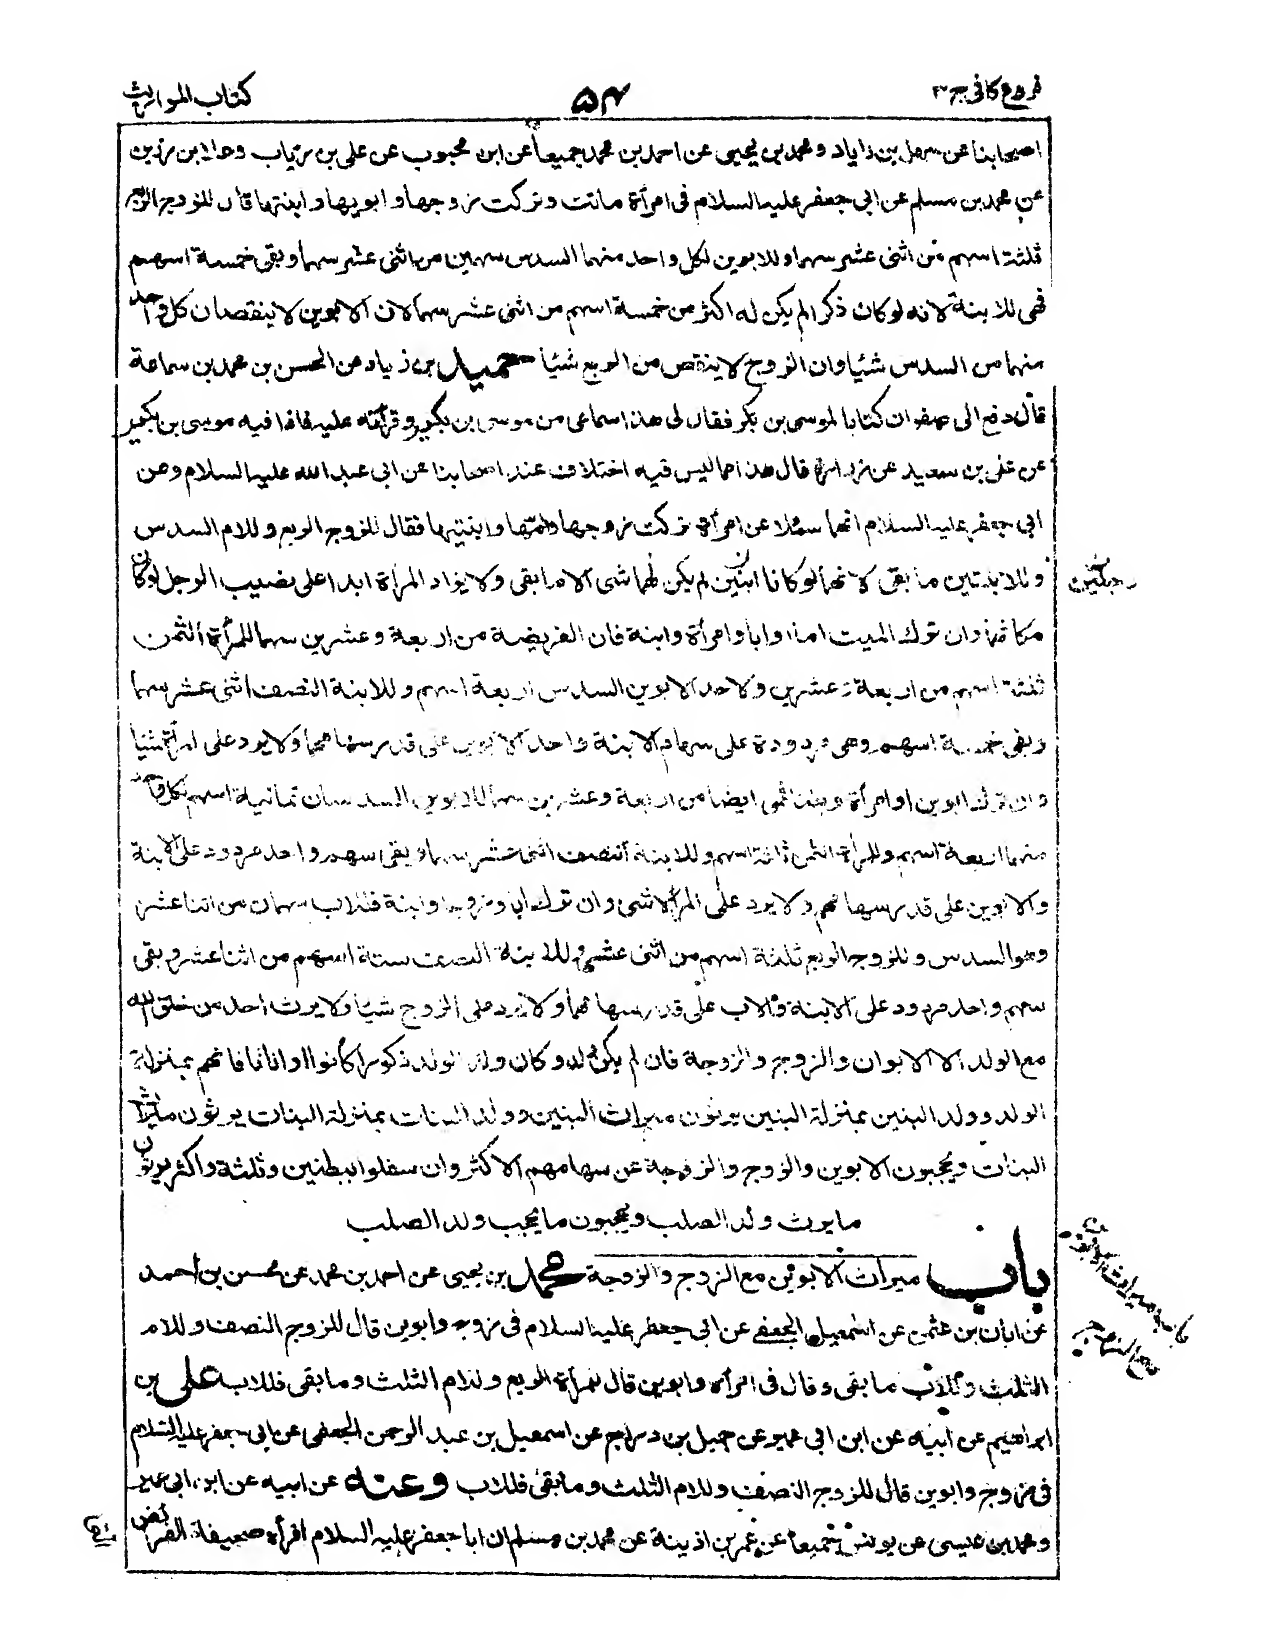 فروع كافى ج٣
٥٤
كتاب المواريث
اصحابنا عن سهل بن زياد ومحمد بن يحيى عن احمد بن محمد جميعا عن ابن محبوب عن على بن رئاب وعلا بن رزين
عن محمد بن مسلم عن ابى جعفر عليه السلام فى امرأة ماتت وتركت زوجها وابويها وابنتها قال للزوج الربع
ثلثة اسهم من اثنى عشر سهما وللابوين لكل واحد منهما السدس سهمين من اثنى عشر سهما وبقى خمسة اسهم
فهى للابنة لانه لوكان ذكرا لم يكن له اكثر من خمسة اسهم من اثنى عشر سهما لان الابوين لا ينقصان كل واحد
منهما من السدس شيئا وان الزوج لا ينقص من الربع شيئا حميد بن زياد عن الحسن بن محمد بن سماعة
قال دفع الى صفوان كتابا لموسى بن بكر فقال لى هذا سماعى من موسى بن بكير وقرأته عليه فاذا فيه موسى بن بكير
عن على بن سعيد عن زرارة قال هذا مما ليس فيه اختلاف عند اصحابنا عن ابى عبد الله عليه السلام وعن
ابى جعفر عليه السلام انهما سئلا عن امرأة تركت زوجها وامها وابنتيها فقال للزوج الربع وللام السدس
وللابنتين ما بقى لانهما لو كانا ابنين لم يكن لهما شى الا ما بقى ولا يزاد المرأة ابدا على نصيب الرجل لوكان
مكانها وان ترك الميت اما او ابا وامرأة وابنة فان الفريضة من اربعة وعشرين سهما للمرأة الثمن
ثلثة اسهم من اربعة وعشرين ولاحد الابوين السدس اربعة اسهم وللابنة النصف اثنى عشر سهما
وبقى خمسة اسهم وهى مردودة على سهام الابنة واحد الابوين على قدر سهامهما ولا يرد على المرأة شيئا
وان ترك ابوين وامرأة وبنتا فهى ايضا من اربعة وعشرين سهما للابوين السدسان ثمانية اسهم لكل واحد
منهما اربعة اسهم وللمرأة الثمن ثلثة اسهم وللابنة النصف اثنى عشر سهما وبقى سهم واحد مردود على الابنة
والابوين على قدر سهامهم ولا يرد على المرأة شى وان ترك ابا وزوجا وابنة فللاب سهمان من اثنا عشر
وهو السدس وللزوج الربع ثلثة اسهم من اثنى عشر وللابنة النصف ستة اسهم من اثنا عشر وبقى
سهم واحد مردود على الابنة والاب على قدر سهامهما ولا يرد على الزوج شيئا ولا يرث احد من خلق الله
مع الولد الا الابوان والزوج والزوجة فان لم يكن ولد وكان ولد الولد ذكورا كانوا او اناثا فانهم بمنزلة
الولد وولد البنين بمنزلة البنين يرثون ميراث البنين وولد البنات بمنزلة البنات يرثون ميراث
البنات ويحجبون الابوين والزوج والزوجة عن سهامهم الاكثر وان سفلوا ببطنين وثلثة واكثر يرثون
ما يرث ولد الصلب ويحجبون ما يحجب ولد الصلب
باب ميراث الابوين مع الزوج والزوجة محمد بن يحيى عن احمد بن محمد عن محسن بن احمد
عن ابان بن عثمن عن اسمعيل الجعفى عن ابى جعفر عليه السلام فى زوج وابوين قال للزوج النصف وللام
الثلث وللاب ما بقى وقال فى امرأة وابوين قال للمرأة الربع وللام الثلث وما بقى فللاب على بن
ابراهيم عن ابيه عن ابن ابى عمير عن جميل بن دراج عن اسمعيل بن عبد الرحمن الجعفى عن ابى جعفر عليه السلام
فى زوج وابوين قال للزوج النصف وللام الثلث وما بقى فللاب وعنه عن ابيه عن ابن ابى عمير
ومحمد بن عيسى عن يونس جميعا عن عمر بن اذينة عن محمد بن مسلم ان ابا جعفر عليه السلام اقرأه صحيفة الفرائض